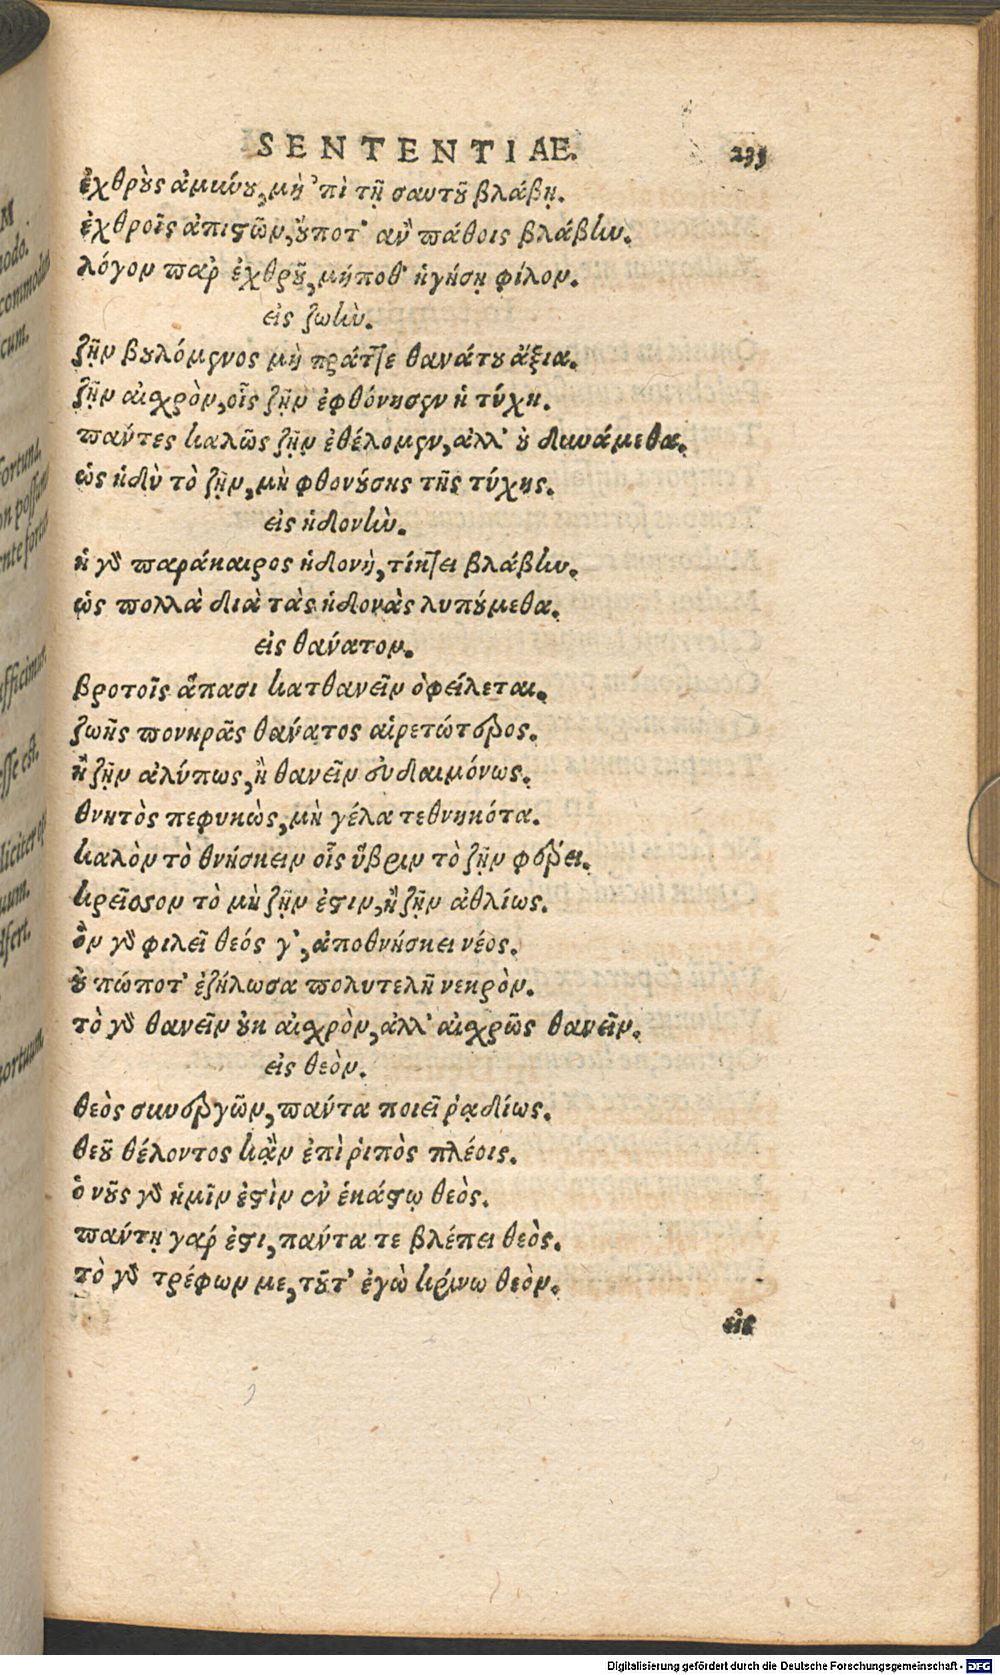 SENTENTIAE. 235
ἐχθρὺς ἀμύνου, μὴ 'πὶ τῇ σαυτοῦ βλάβῃ.
ἐχθροῖς ἀπιστῶν, οὔποτ' ἂν πάθοις βλάβην.
λόγον παρ' ἐχθροῦ, μήποθ' ἡγήσῃ φίλον.
εἰς ζωὴν.
ζῆν βουλόμενος μὴ πράττε θανάτου ἄξια.
ζῆν αἰσχρὸν, οἷς ζῆν ἐφθόνησεν ἡ τύχη.
πάντες καλῶς ζῆν ἐθέλομεν, ἀλλ' οὐ δυνάμεθα.
ὡς ἡδὺ τὸ ζῆν, μὴ φθονούσης τῆς τύχης.
εἰς ἡδονὴν.
ἡ γὰρ παράκαιρος ἡδονὴ, τίκτει βλάβην.
ὡς πολλὰ διὰ τὰς ἡδονὰς λυπούμεθα.
εἰς θάνατον.
βροτοῖς ἅπασι κατθανεῖν ὀφείλεται.
ζωῆς πονηρᾶς θάνατος αἱρετώτερος.
ἢ ζῆν ἀλύπως, ἢ θανεῖν εὐδαιμόνως.
θνητὸς πεφυκὼς, μὴ γέλα τεθνηκότα.
καλὸν τὸ θνήσκειν οἷς ὕβριν τὸ ζῆν φέρει.
κρεῖσσον τὸ μὴ ζῆν ἐστιν, ἢ ζῆν ἀθλίως.
ὃν γὰρ φιλεῖ θεός γ', ἀποθνήσκει νέος.
οὐ πώποτ' ἐζήλωσα πολυτελῆ νεκρὸν.
τὸ γὰρ θανεῖν οὐκ αἰσχρὸν, ἀλλ' αἰσχρῶς θανεῖν.
εἰς θεὸν.
θεὸς συνεργῶν, πάντα ποιεῖ ῥᾳδίως.
θεοῦ θέλοντος κᾂν ἐπὶ ῥιπὸς πλέοις.
ὁ νοῦς γὰρ ἡμῖν ἐστὶν ἐν ἑκάστῳ θεὸς.
πάντῃ γάρ ἐστι, πάντα τε βλέπει θεὸς.
τὸ γὰρ τρέφων με, τοῦτ' ἐγὼ κρίνω θεὸν.
εἰς
Digitalisierung gefördert durch die Deutsche Forschungsgemeinschaft - DFG